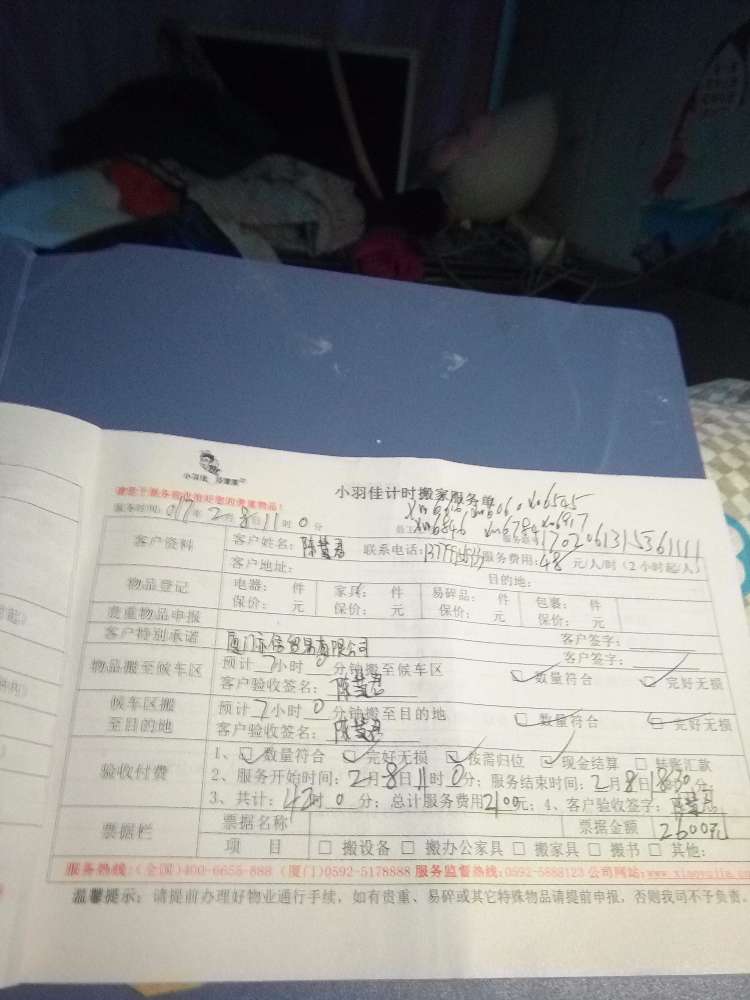 小羽佳
小羽佳计时搬家服务单
服务时间:017年2月8日11时0分
1702061315361111
客户资料 客户姓名:陈慧君 联系电话: 服务费用:48元/人/时(2小时起/人)
客户地址: 目的地:
物品登记 电器: 件 家具: 件 易碎品: 件 包裹: 件
保价: 元 保价: 元 保价: 元 保价: 元
贵重物品申报 客户签字:
客户特别承诺 客户签字:
物品搬至候车区 预计 小时0分钟搬至候车区 数量符合 完好无损
客户验收签名:
候车区搬至目的地 预计 小时0分钟搬至目的地 数量符合 完好无损
客户验收签名:
验收付费 1、数量符合 完好无损 按需归位 现金结算 转账汇款
2、服务开始时间:2月8日11时0分;服务结束时间:2月8日18时30分
3、共计:42时0分;总计服务费用2100元;4、客户验收签字:
票据栏 票据名称 票据金额 2600元
项 目 搬设备 搬办公家具 搬家具 搬书 其他:
服务热线:(全国)400-6655-888 (厦门)0592-5178888 服务监督热线:0592-5888123 公司网站:www.xiaoyujia.com
温馨提示:请提前办理好物业通行手续,如有贵重、易碎或其它特殊物品请提前申报,否则我司不予负责。